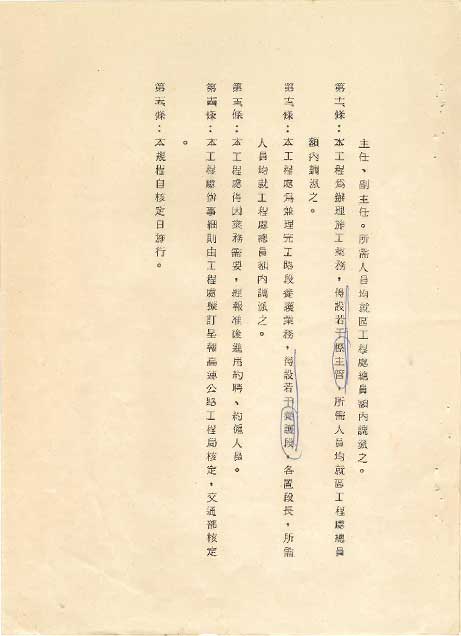 主任、副主任。所需人員均就區工程處總員額內調派之。
第十一條：本工程處為辦理施工業務，得設若干主管，所需人員均就區工程處總員
額內調派之。
第十二條：本工程處為兼理完工路段養護業務，得設若干養護段，各置段長，所需
人員均就工程處總員額內調派之。
第十三條：本工程處得因業務需要，經報准後進用約聘、約僱人員。
第十四條：本工程處辦事細則由工程處擬訂呈報高速公路工程局核定，交通部核定
。
第十五條：本規程自核定日施行。